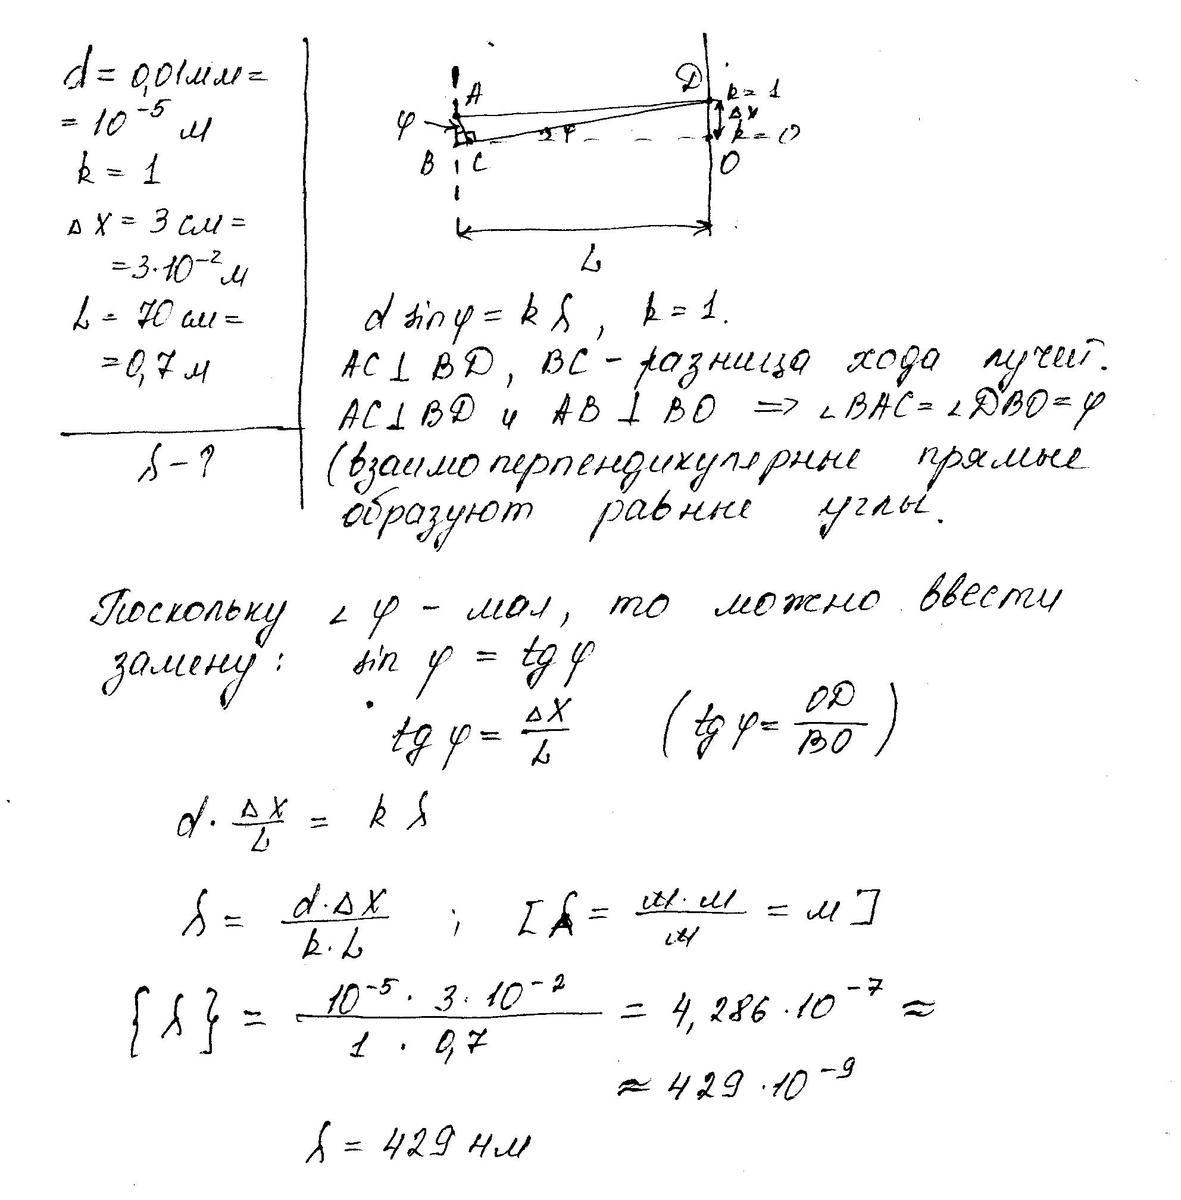 d = 0,01 мм =
= 10⁻⁵ м
k = 1
Δx = 3 см =
= 3·10⁻² м
L = 70 см =
= 0,7 м
λ - ?
A
D
k = 1
Δx
φ
φ
k = 0
B
C
O
L
d sin φ = k λ, k = 1.
AC ⊥ BD, BC - разница хода лучей.
AC ⊥ BD и AB ⊥ BO => ∠BAC = ∠DBO = φ
(взаимоперпендикулярные прямые
образуют равные углы.
Поскольку ∠φ - мал, то можно ввести
замену: sin φ = tg φ
tg φ = Δx/L (tg φ = OD/BO)
d · Δx/L = k λ
λ = d·Δx/k·L ; [λ = м·м/м = м]
{λ} = 10⁻⁵ · 3 · 10⁻²/1 · 0,7 = 4,286 · 10⁻⁷ ≈
≈ 429 · 10⁻⁹
λ = 429 нм